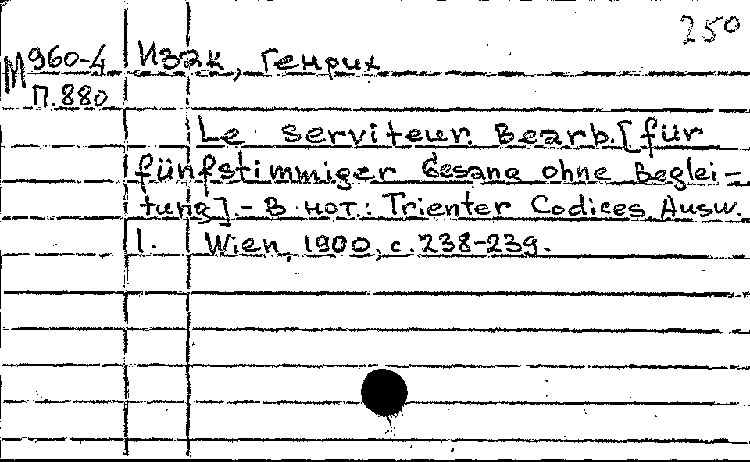 250
М 960-4 Изак, Генрих
П.880
Le serviteur. Bearb. [für
fünfstimmiger Gesang ohne Beglei-
tung]. - В нот.: Trienter Codices. Ausw.
1. Wien, 1900, с. 238-239.